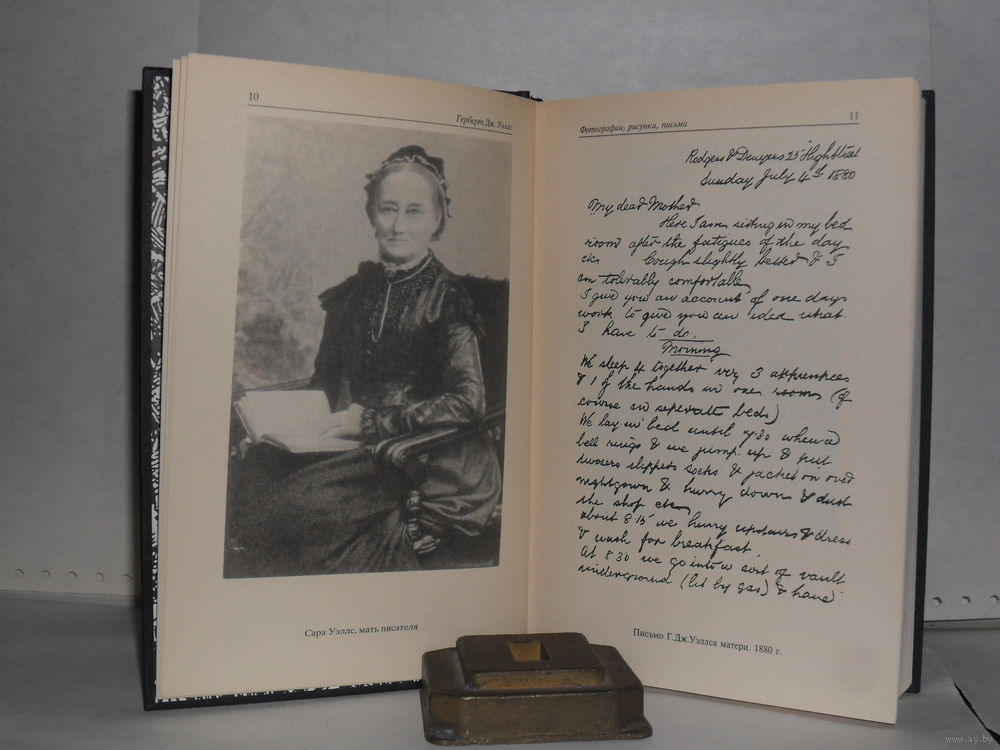 10
Герберт Дж. Уэллс
Сара Уэллс, мать писателя
Фотографии, рисунки, письма
11
Rodgers & Denyers 25 High Street
Sunday July 4th 1880
My dear Mother
Here I am sitting in my bed
room after the fatigues of the day
etc Cough slightly better & I
am tolerably comfortable
I give you an account of one days
work to give you an idea what
I have to do.
Morning
We sleep 4 together very 3 apprentices
& 1 of the hands in one room (of
course in seperate beds)
We lay in bed until 7.30 when a
bell rings & we jump up & put
trousers slippers socks & jacket on over
nightgown & hurry down & dust
the shop etc
about 8 15 we hurry upstairs & dress
& wash for breakfast.
At 8 30 we go into a sort of vault
underground (lit by gas) & have
Письмо Г.Дж.Уэллса матери. 1880 г.
www.ay.by